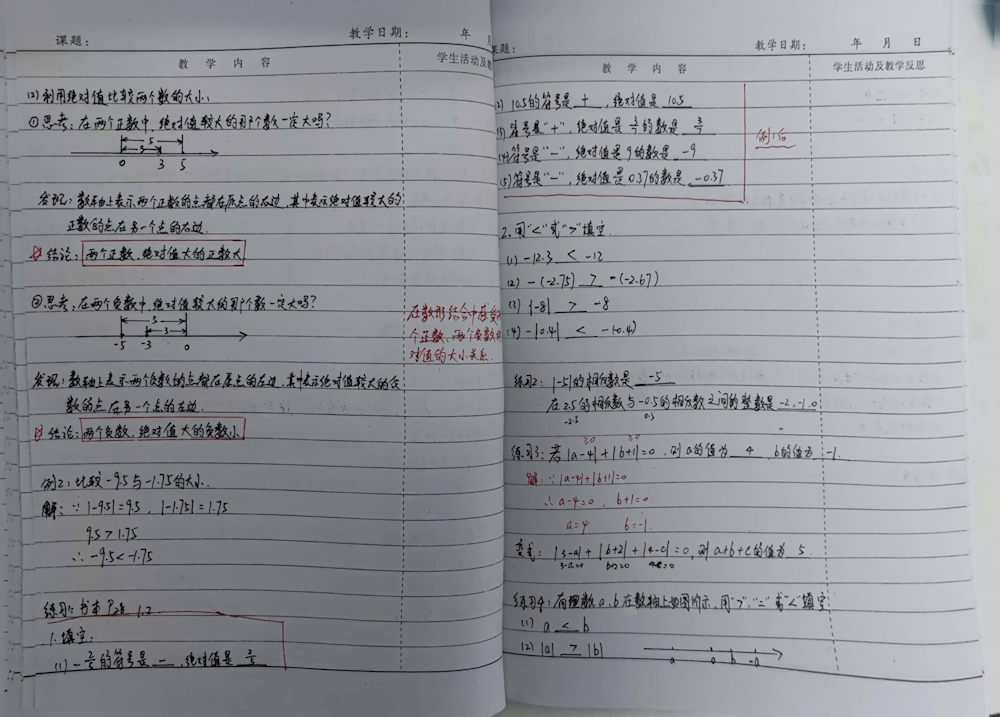 课题：
教学日期： 年 月
教 学 内 容
学生活动及教
(2) 利用绝对值比较两个数的大小。
①思考：在两个正数中，绝对值较大的那个数一定大吗？
5
3
0 3 5
发现：数轴上表示两个正数的点都在原点的右边，其中表示绝对值较大的
正数的点在另一个点的右边.
结论：两个正数，绝对值大的正数大
②思考：在两个负数中，绝对值较大的那个数一定大吗？
5
3
-5 -3 0
在数形结合中感受
个正数、两个负数
对值的大小关系.
发现：数轴上表示两个负数的点都在原点的左边，其中表示绝对值较大的负
数的点在另一个点的左边.
结论：两个负数，绝对值大的负数小
例2：比较-9.5与-1.75的大小.
解：∵ |-9.5|=9.5，|-1.75|=1.75
9.5>1.75
∴ -9.5<-1.75
练习1：书本P28 1.2
1.填空：
的符号是 - ，绝对值是
课题：
教学日期： 年 月 日
教 学 内 容
学生活动及教学反思
(2) 10.5的符号是 + ，绝对值是 10.5
(3) 符号是"+"，绝对值是 的数是
(4) 符号是"-"，绝对值是9的数是 -9
(5) 符号是"-"，绝对值是0.37的数是 -0.37
例1后
2. 用"<"或">"填空
(1) -12.3 < -12
(2) -(-2.75) > -(-2.67)
(3) |-8| > -8
(4) -|0.4| < -(-0.4)
练习2：|-5|的相反数是 -5
在2.5的相反数与-0.5的相反数之间的整数是 -2.-1.0
-2.5 0.5
≥0 ≥0
练习3：若|a-4|+|b+1|=0，则a的值为 4 ，b的值为 -1.
解：∵ |a-4|+|b+1|=0
∴ a-4=0，b+1=0
a=4 b=-1.
变式：|3-a|+|b+2|+|4-c|=0，则a+b+c的值为 5.
3-a=0 b+2=0 4-c=0
练习4：有理数a、b在数轴上如图所示，用">"、"="或"<"填空
(1) a < b
(2) |a| > |b|
a 0 b -a